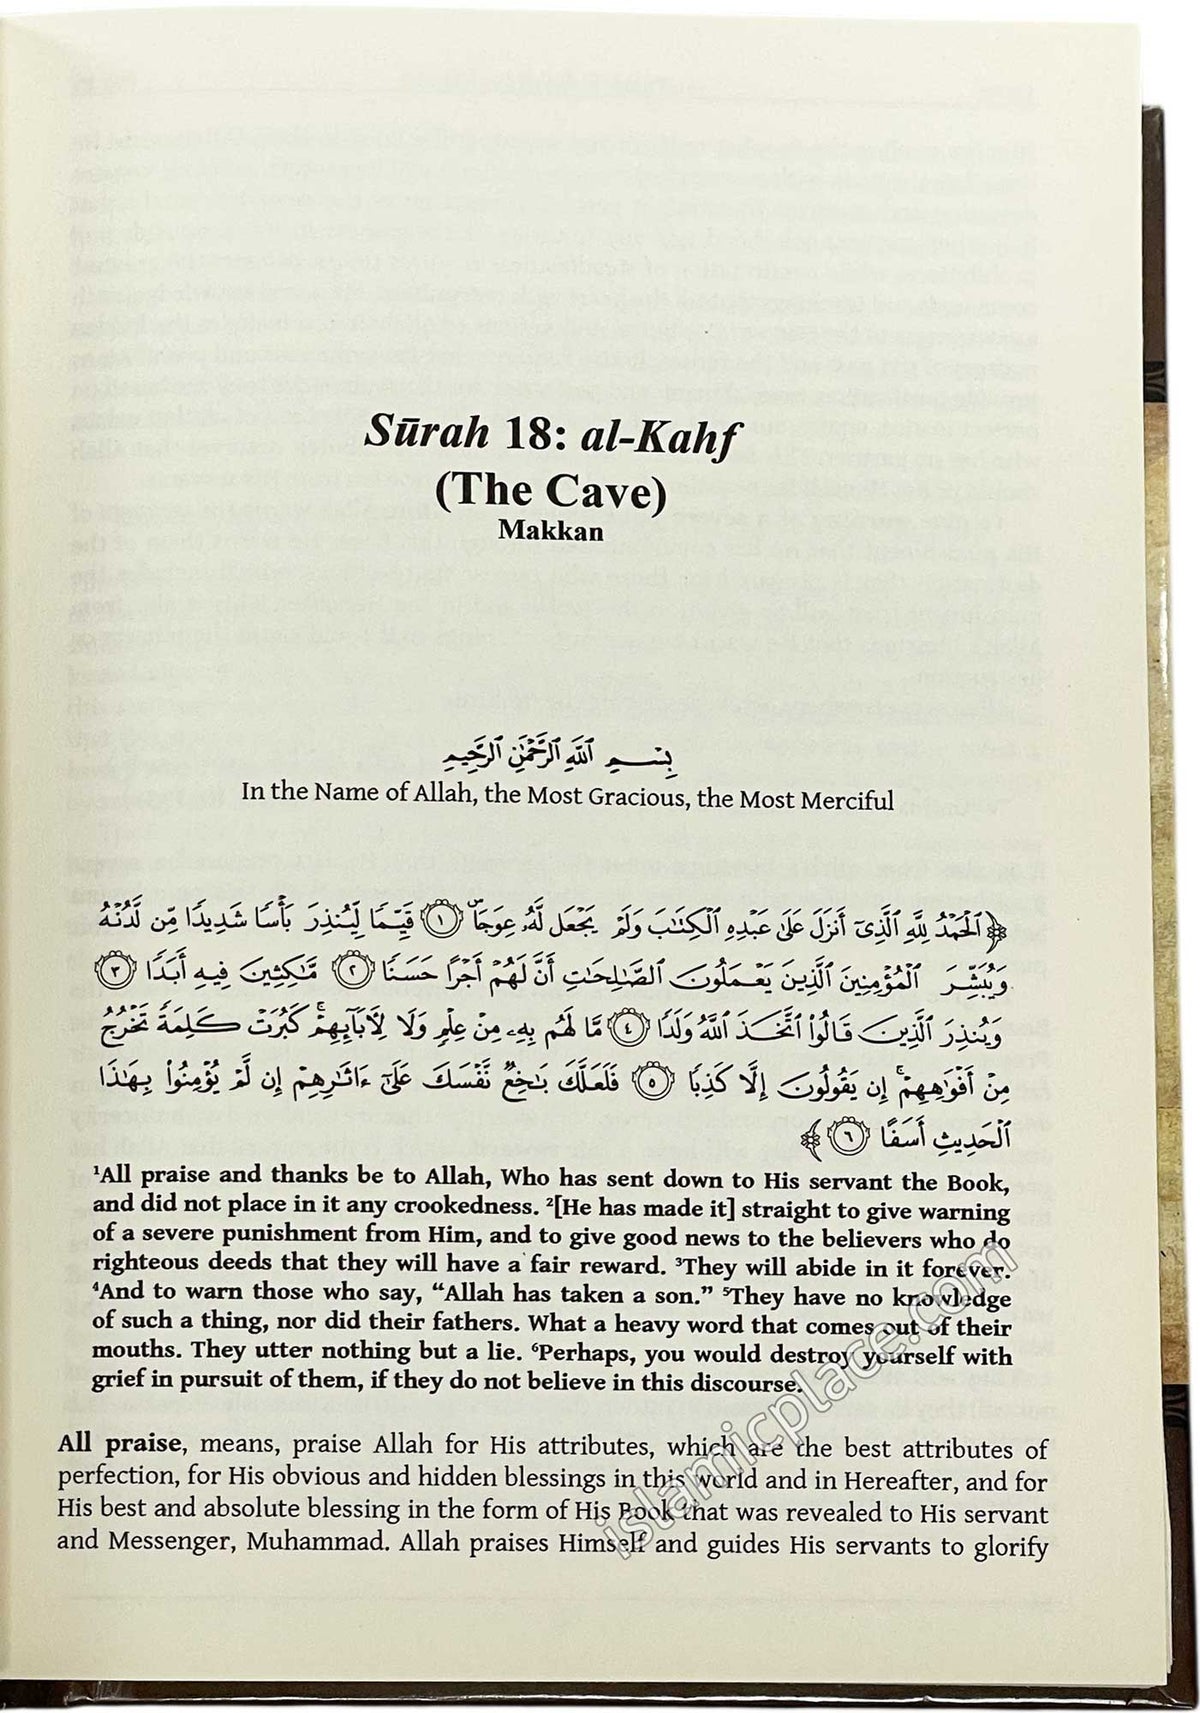 Sūrah 18: al-Kahf
(The Cave)
Makkan
بِسْمِ ٱللَّهِ ٱلرَّحْمَٰنِ ٱلرَّحِيمِ
In the Name of Allah, the Most Gracious, the Most Merciful
﴿ٱلْحَمْدُ لِلَّهِ ٱلَّذِىٓ أَنزَلَ عَلَىٰ عَبْدِهِ ٱلْكِتَٰبَ وَلَمْ يَجْعَل لَّهُۥ عِوَجَاۜ ١ قَيِّمًا لِّيُنذِرَ بَأْسًا شَدِيدًا مِّن لَّدُنْهُ
وَيُبَشِّرَ ٱلْمُؤْمِنِينَ ٱلَّذِينَ يَعْمَلُونَ ٱلصَّٰلِحَٰتِ أَنَّ لَهُمْ أَجْرًا حَسَنًا ٢ مَّٰكِثِينَ فِيهِ أَبَدًا ٣
وَيُنذِرَ ٱلَّذِينَ قَالُوا۟ ٱتَّخَذَ ٱللَّهُ وَلَدًا ٤ مَّا لَهُم بِهِۦ مِنْ عِلْمٍ وَلَا لِـَٔابَآئِهِمْ ۚ كَبُرَتْ كَلِمَةً تَخْرُجُ
مِنْ أَفْوَٰهِهِمْ ۚ إِن يَقُولُونَ إِلَّا كَذِبًا ٥ فَلَعَلَّكَ بَٰخِعٌ نَّفْسَكَ عَلَىٰٓ ءَاثَٰرِهِمْ إِن لَّمْ يُؤْمِنُوا۟ بِهَٰذَا
ٱلْحَدِيثِ أَسَفًا ٦﴾
¹All praise and thanks be to Allah, Who has sent down to His servant the Book,
and did not place in it any crookedness. ²[He has made it] straight to give warning
of a severe punishment from Him, and to give good news to the believers who do
righteous deeds that they will have a fair reward. ³They will abide in it forever.
⁴And to warn those who say, “Allah has taken a son.” ⁵They have no knowledge
of such a thing, nor did their fathers. What a heavy word that comes out of their
mouths. They utter nothing but a lie. ⁶Perhaps, you would destroy yourself with
grief in pursuit of them, if they do not believe in this discourse.
All praise, means, praise Allah for His attributes, which are the best attributes of
perfection, for His obvious and hidden blessings in this world and in Hereafter, and for
His best and absolute blessing in the form of His Book that was revealed to His servant
and Messenger, Muhammad. Allah praises Himself and guides His servants to glorify
islamicplace.com